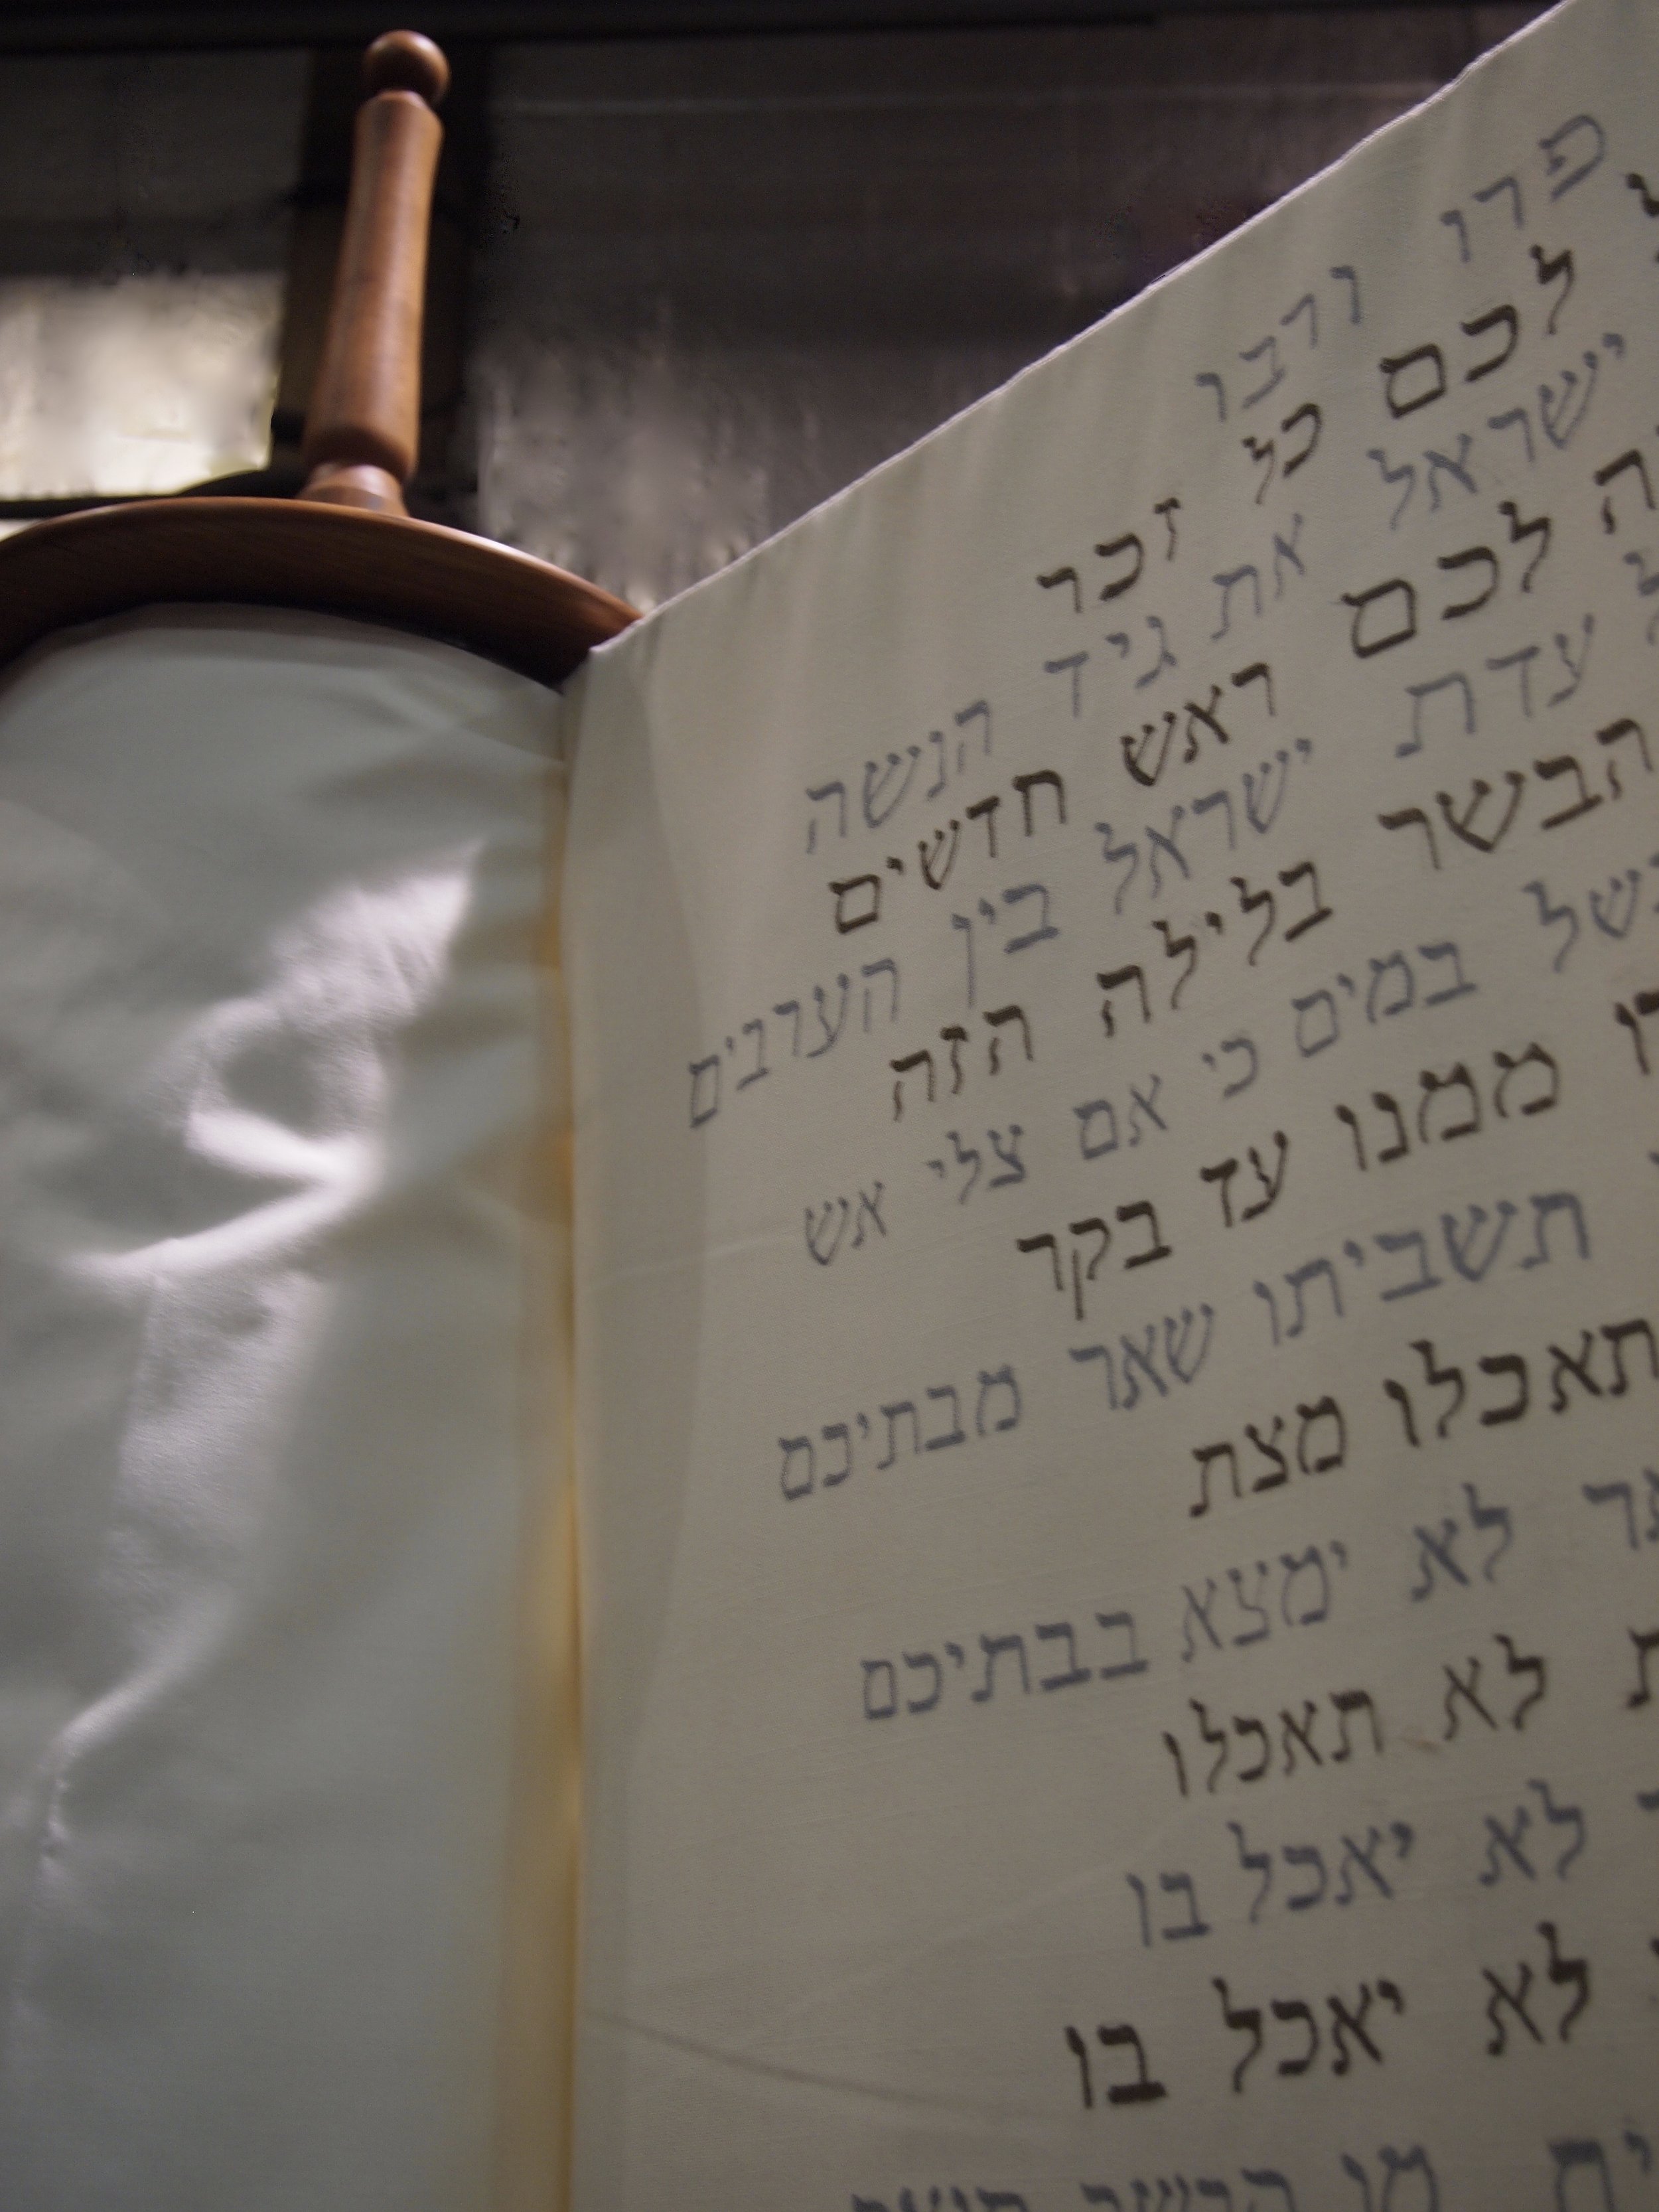 פרו ורבו
לכם כל זכר
ישראל את גיד הנשה
לכם ראש חדשים
עדת ישראל בין הערבים
הבשר בלילה הזה
במים כי אם צלי אש
ממנו עד בקר
תשביתו שאר מבתיכם
תאכלו מצת
לא ימצא בבתיכם
לא תאכלו
לא יאכל בו
לא יאכל בו
מן הבשר